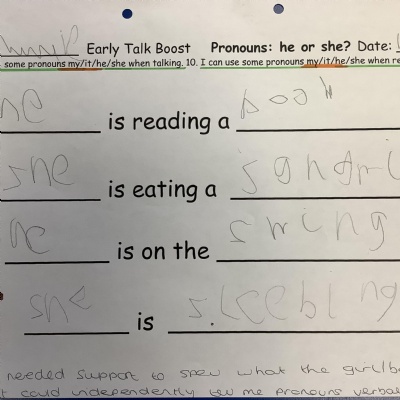 Early Talk Boost Pronouns: he or she? Date:
some pronouns my/it/he/she when talking. 10. I can use some pronouns my/it/he/she when re
he is reading a book
she is eating a
he is on the swing
she is
needed support to spell what the girl/b
t could independently tell me pronouns verbal